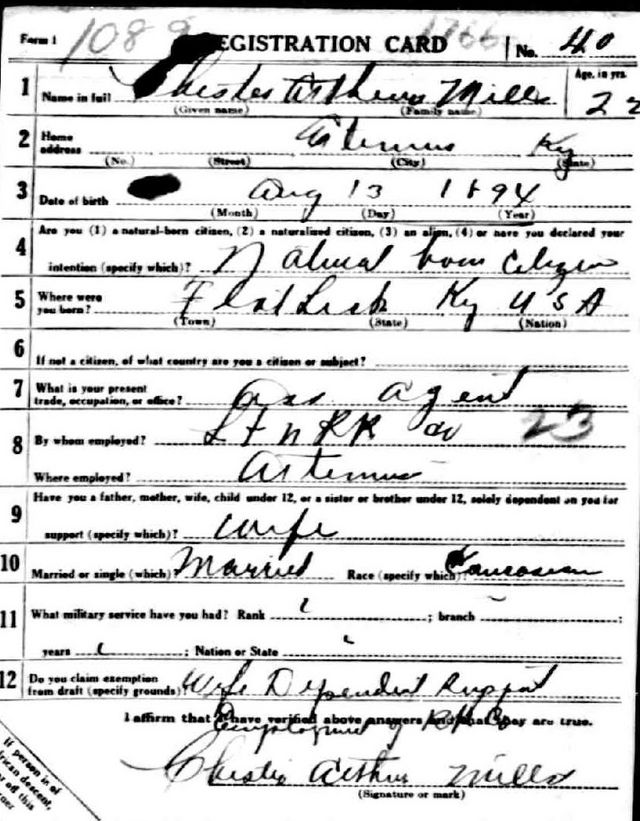 Form 1 1089 REGISTRATION CARD 1766 No. 40
1 Name in full Chester Arthur Mills Age, in yrs. 22
(Given name) (Family name)
2 Home address Artemus Ky
(No.) (Street) (City) (State)
3 Date of birth Aug 13 1894
(Month) (Day) (Year)
Are you (1) a natural-born citizen, (2) a naturalized citizen, (3) an alien, (4) or have you declared your
4 intention (specify which)? Natural born Citizen
5 Where were you born? Flat Lick Ky USA
(Town) (State) (Nation)
6 If not a citizen, of what country are you a citizen or subject?
7 What is your present trade, occupation, or office? Ass Agent
8 By whom employed? L & N RR Co 23
Where employed? Artemus
9 Have you a father, mother, wife, child under 12, or a sister or brother under 12, solely dependent on you for
support (specify which)? Wife
10 Married or single (which)? Married Race (specify which)? Caucasian
11 What military service have you had? Rank ; branch ;
years ; Nation or State
12 Do you claim exemption from draft (specify grounds)? Wife Dependent Support
I affirm that I have verified above answers and that they are true.
Employment of RR Co
Chester Arthur Mills
(Signature or mark)
If person is of
African descent,
off this
corner